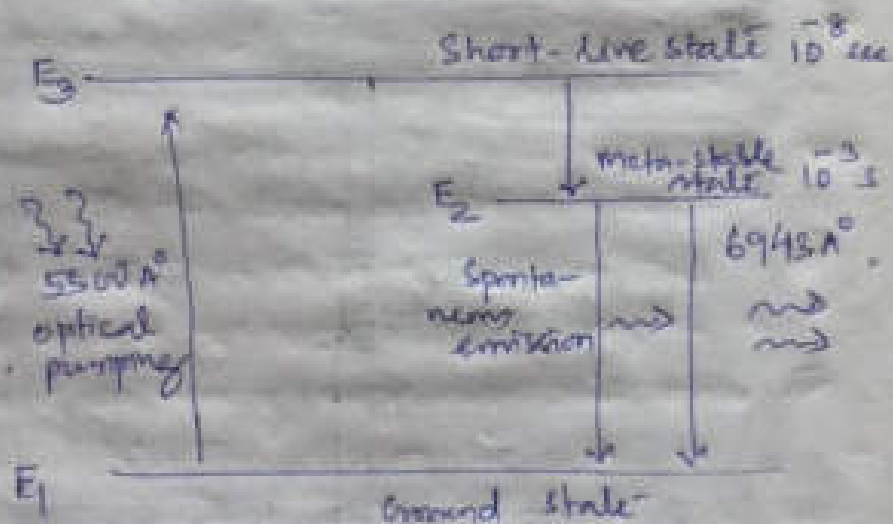 Short-live state 10⁻⁸ sec
E₃
meta-stable
state 10⁻³ s
E₂
6943A°
5500 A°
optical
pumping
Sponta-
neous
emission
E₁
Ground state